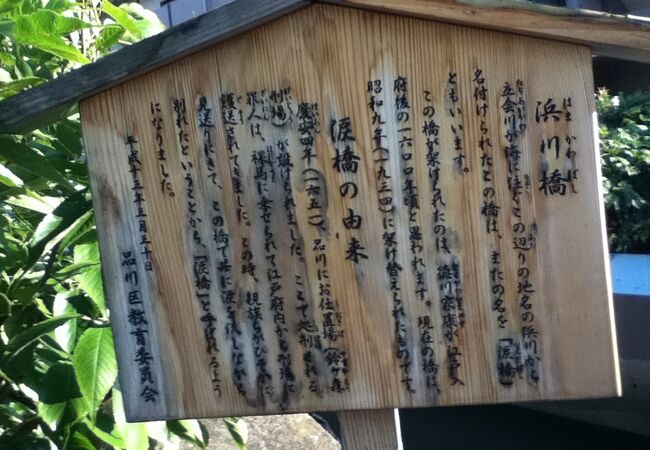 浜川橋
はまかわばし
立会川が海に注ぐこの辺りの地名の浜川から
たちあいがわ
名付けられたこの橋は、またの名を「涙橋」
ともいいます。
この橋が架けられたのは、徳川家康が江戸入
府後の一六〇〇年頃と思われます。現在の橋は、
昭和九年(一九三四)に架け替えられたものです。
涙橋の由来
慶安四年(一六五一)、品川にお仕置場(鈴ヶ森
けいあん
刑場)が設けられました。ここで処刑される
罪人は、裸馬に乗せられて江戸府内から刑場に
護送されてきました。この時、親族らがひそかに
見送りにきて、この橋で共に涙を流しながら
別れたということから、「涙橋」と呼ばれるよう
になりました。
平成十三年三月三十日
品川区教育委員会